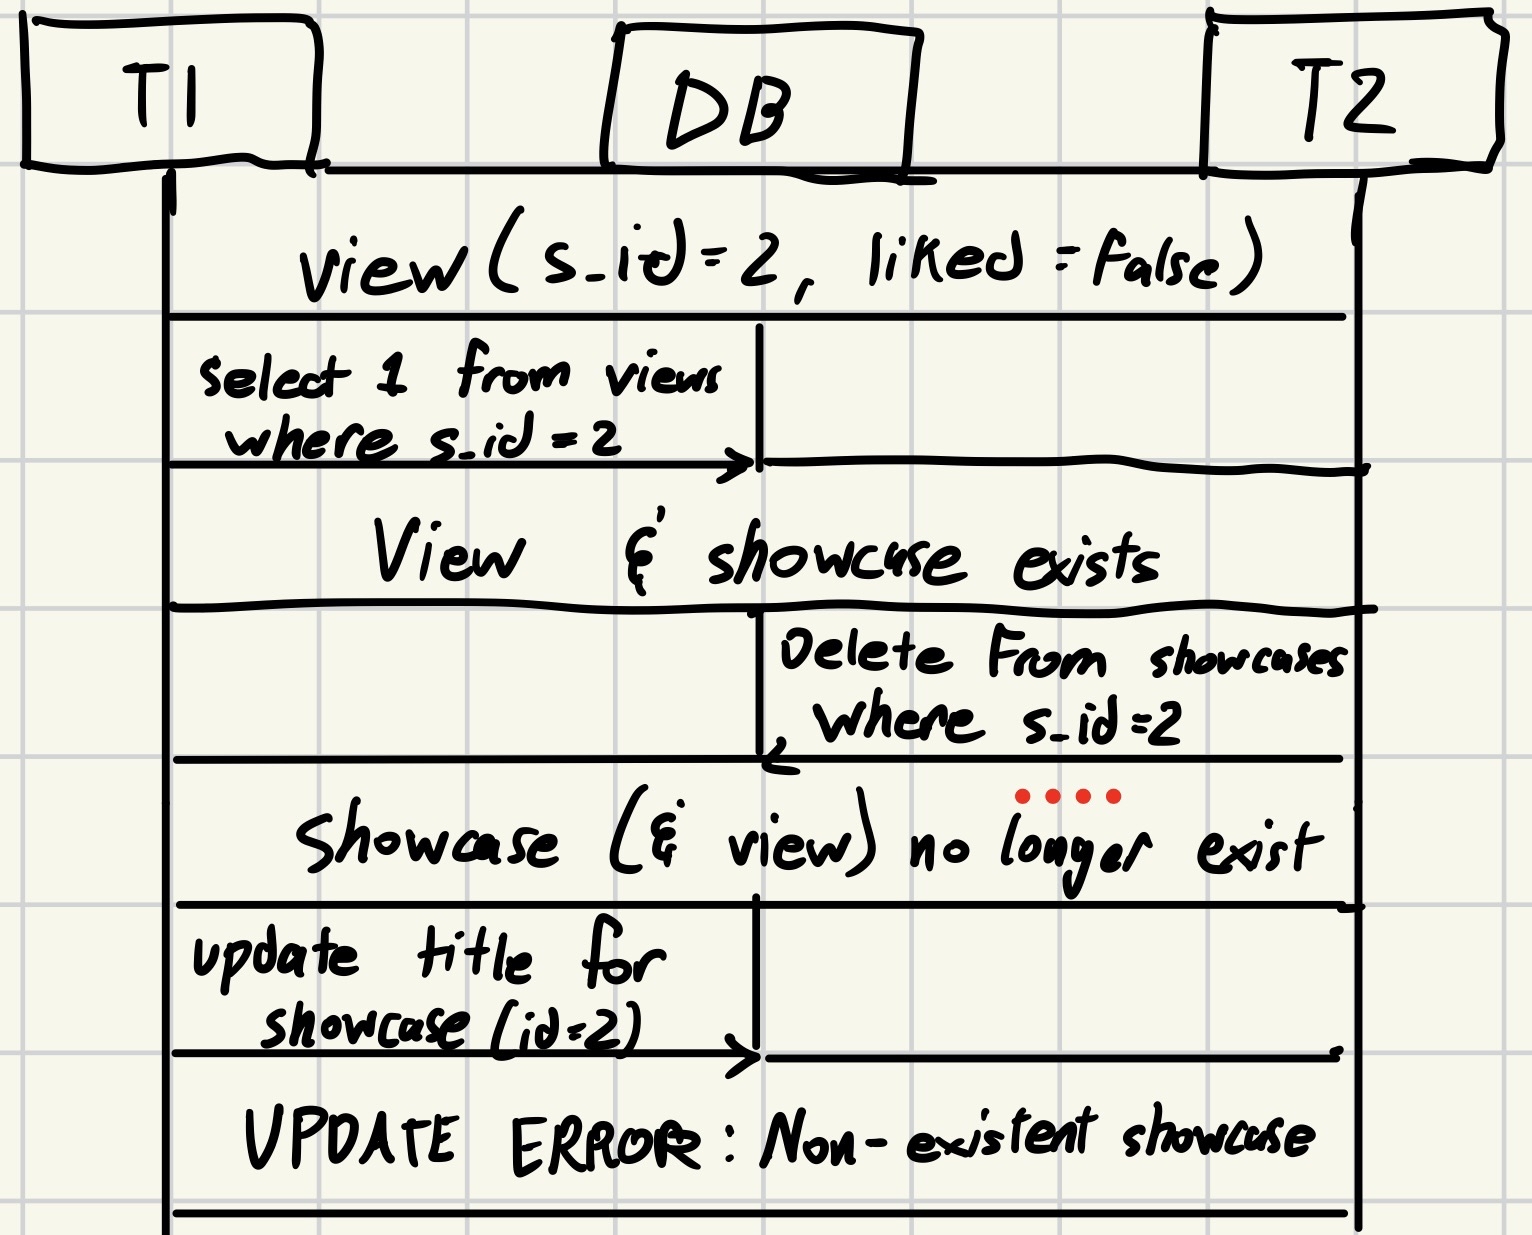 T1
DB
T2
view (s_id=2, liked = false)
select 1 from views
where s_id=2
View & showcase exists
Delete From showcases
where s_id=2
Showcase (& view) no longer exist
update title for
showcase (id=2)
UPDATE ERROR: Non-existent showcase